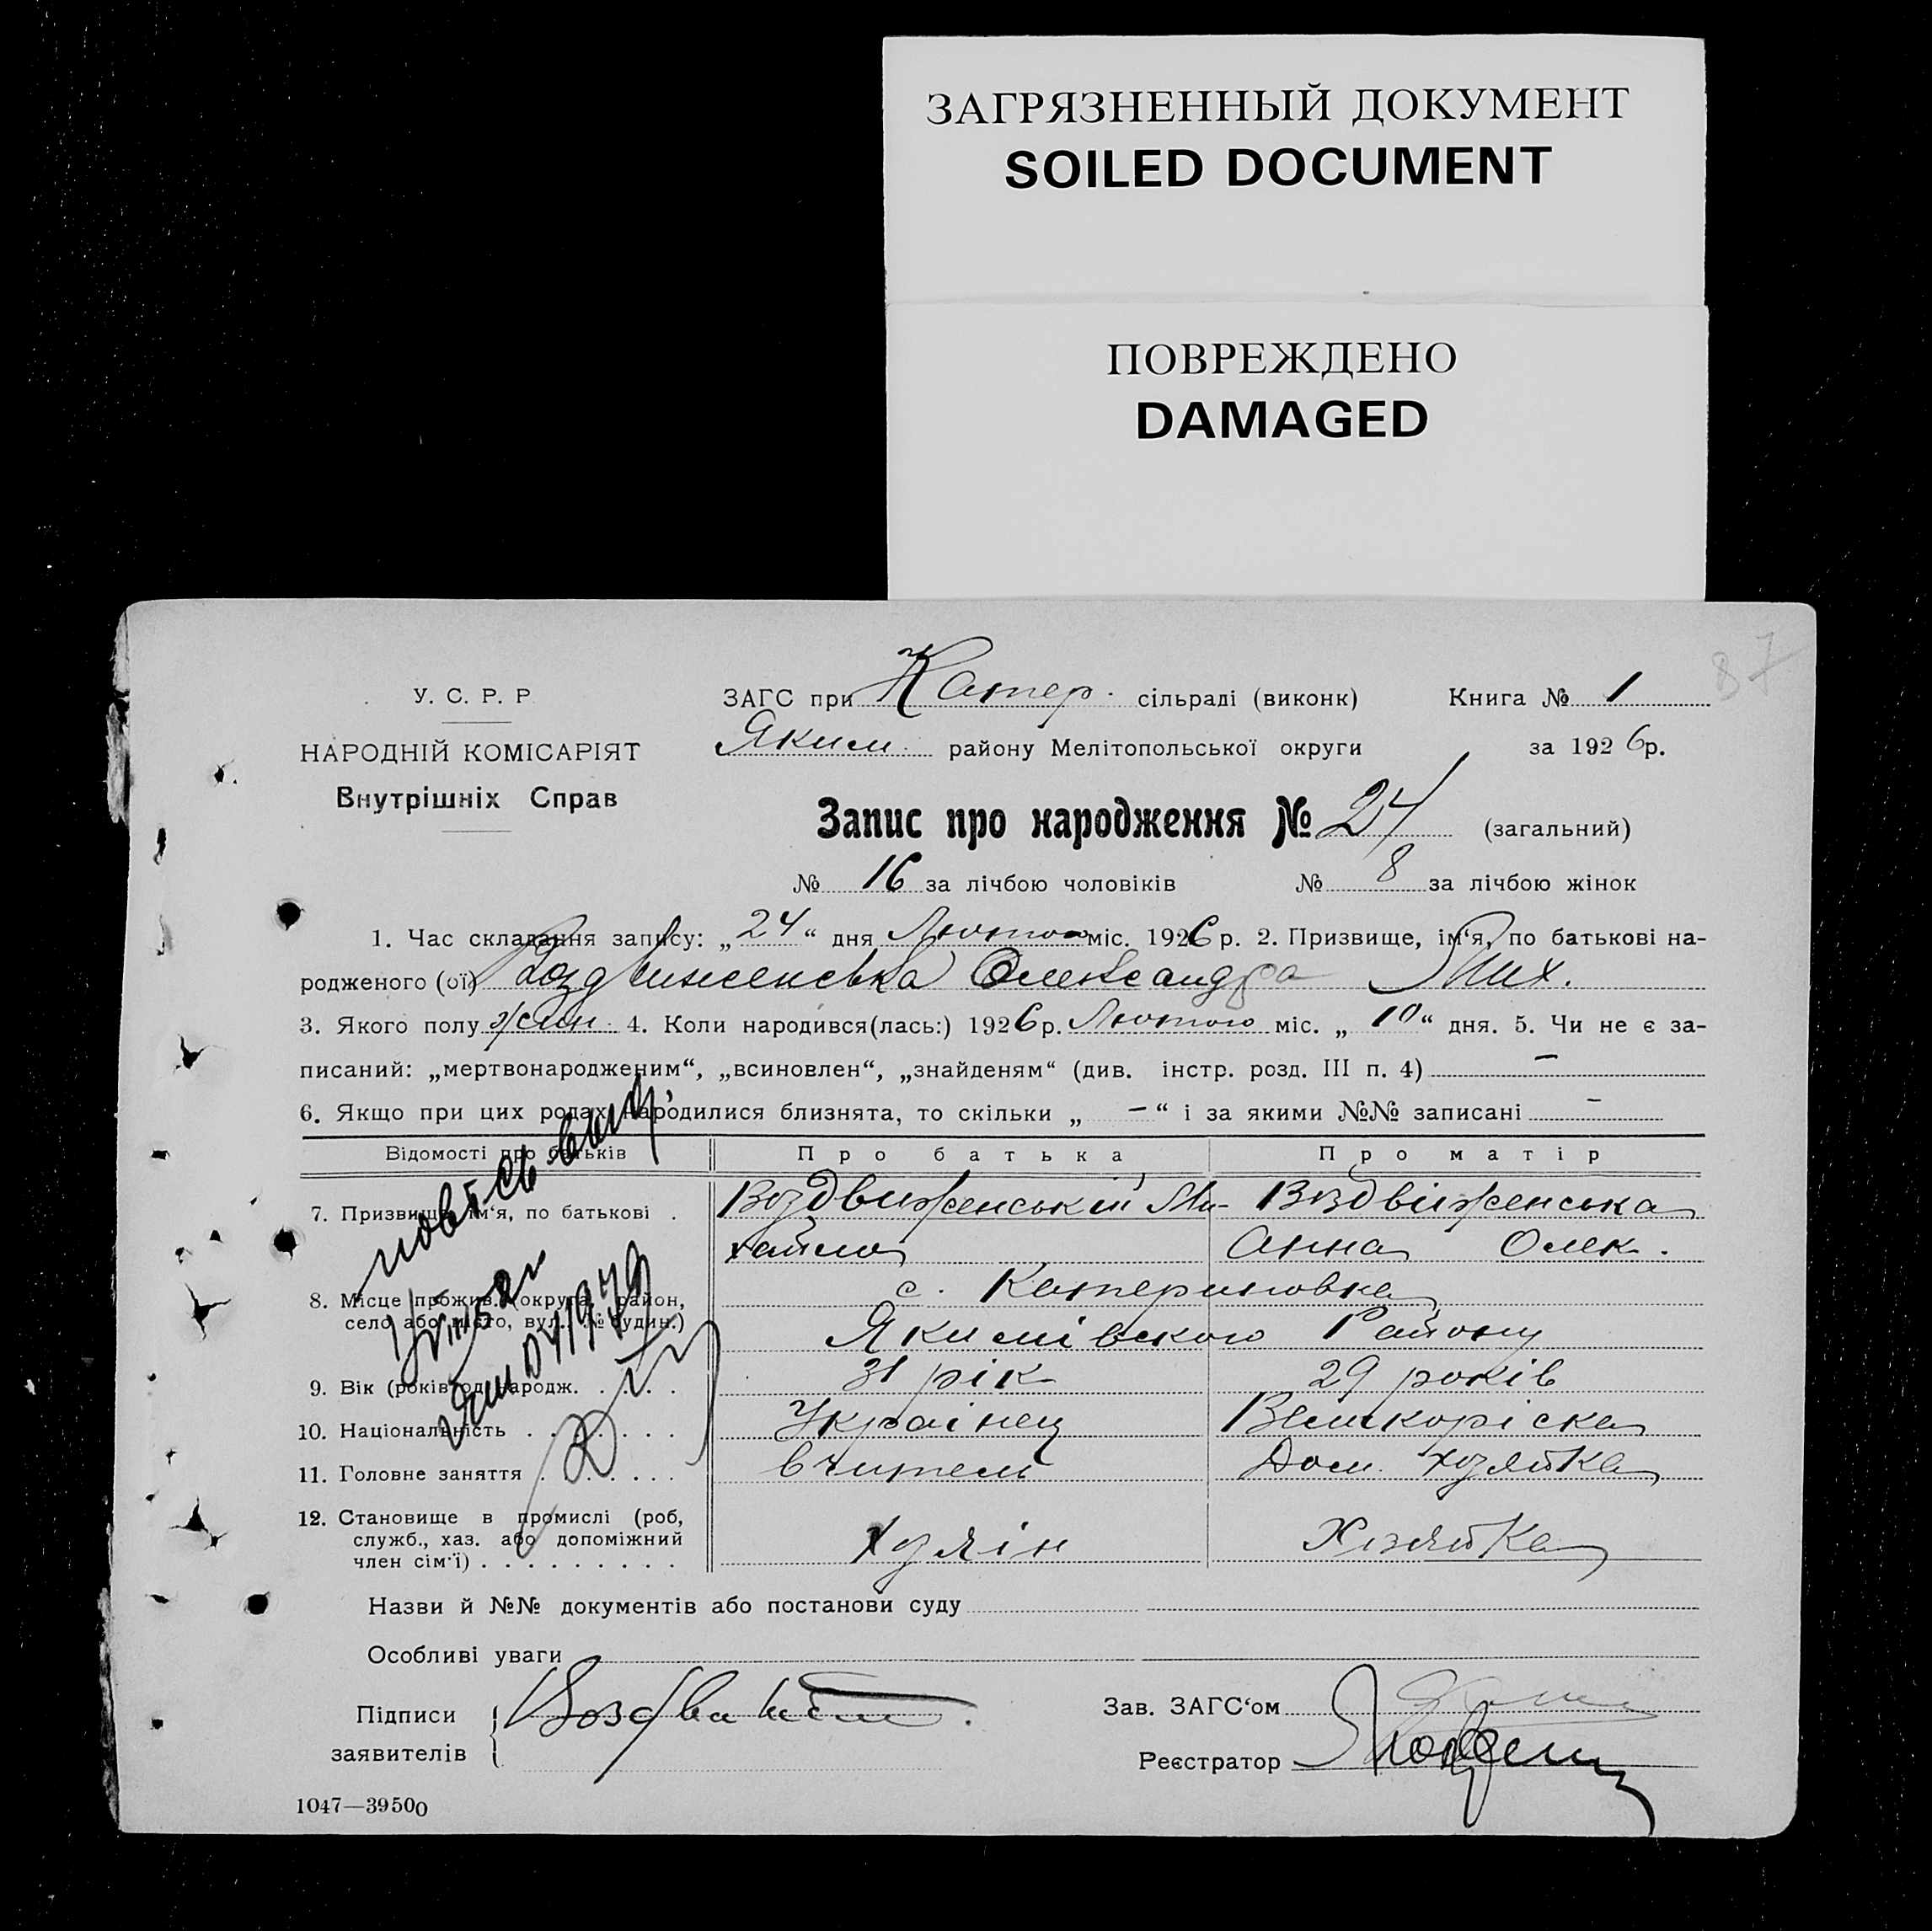 ЗАГРЯЗНЕННЫЙ ДОКУМЕНТ
SOILED DOCUMENT
ПОВРЕЖДЕНО
DAMAGED
87
У. С. Р. Р
НАРОДНІЙ КОМІСАРІЯТ
Внутрішніх Справ
ЗАГС при Катер. сільраді (виконк) Книга № 1
Яким. району Мелітопольської округи за 1926р.
Запис про народження № 24 (загальний)
№ 16 за лічбою чоловіків № 8 за лічбою жінок
1. Час складання запису: „24“ дня Лютого міс. 1926 р. 2. Призвище, ім'я, по батькові на-
родженого (ої) Воздвиженська Олександра Мих.
3. Якого полу жін. 4. Коли народився(лась:) 1926р. Лютого міс. „10“ дня. 5. Чи не є за-
писаний: „мертвонародженим“, „всиновлен“, „знайденям“ (див. інстр. розд. III п. 4) —
6. Якщо при цих родах народилися близнята, то скільки „ — “ і за якими №№ записані —
Відомості про батьків Про батька Про матір
7. Призвище, ім'я, по батькові . Воздвиженський Ми- Воздвіженська
хайло Анна Олек.
8. Місце прожив. (округа, район, с. Катериновка
село або місто, вул. № будин.) Якимівского Району
9. Вік (років) од народж. . . . . 31 рік 29 років
10. Національність . . . . . . . Українец Великоріска
11. Головне заняття . . . . . . вчитель Дом. хозяйка
12. Становище в промислі (роб,
служб., хаз. або допоміжний
член сім'ї) . . . . . . . . . Хозяін Хозяйка
Назви й №№ документів або постанови суду
Особливі уваги
Підписи
заявителів
Зав. ЗАГС'ом
Реєстратор
1047—39500